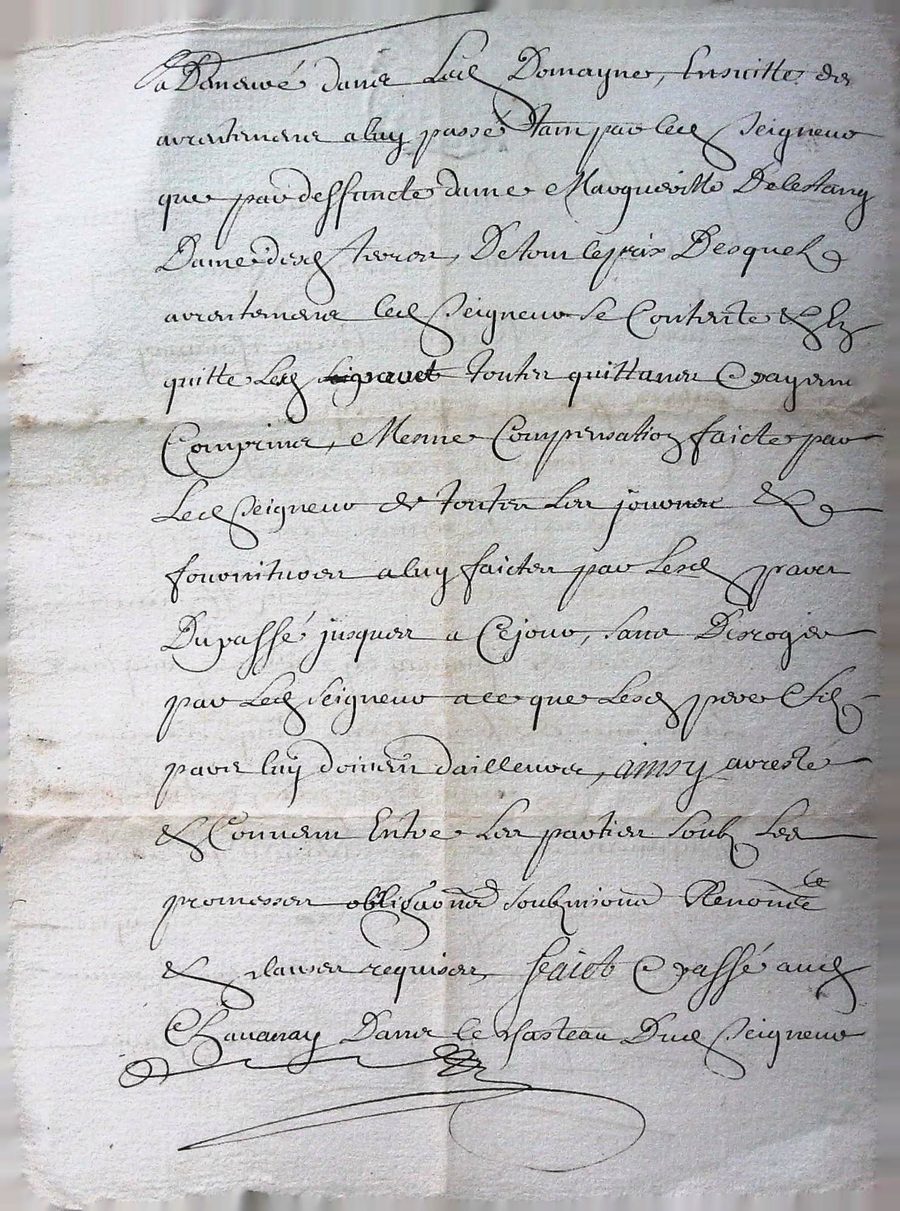 a Demeuré dans Led Domayne, Ensuitte des
arrentemens a luy passé tam par led Seigneur
que par deffuncte dame Margueritte Delestang
Dame desd Terres, De tout le prix Desquels
arrentemens led Seigneur se Contente & En
quitte Lesd toutes quittances Cy
Comprinses, Mesme Compensation faicte par
Led Seigneur de toutes Les jouones &
fournitures a luy faictes par Lesd paves
Du passé jusques a Ce jour, sans Desroger
par Led Seigneur a ce que Lesd pere & filz
paves luy doivent d'ailleurs, ainsy arresté
& Convenu Entre Les parties soubz Les
promesses obligaons soubzmisons Renonce
& clauses requises, faict & passé aud
Chavanay Dans le chasteau Dud Seigneur